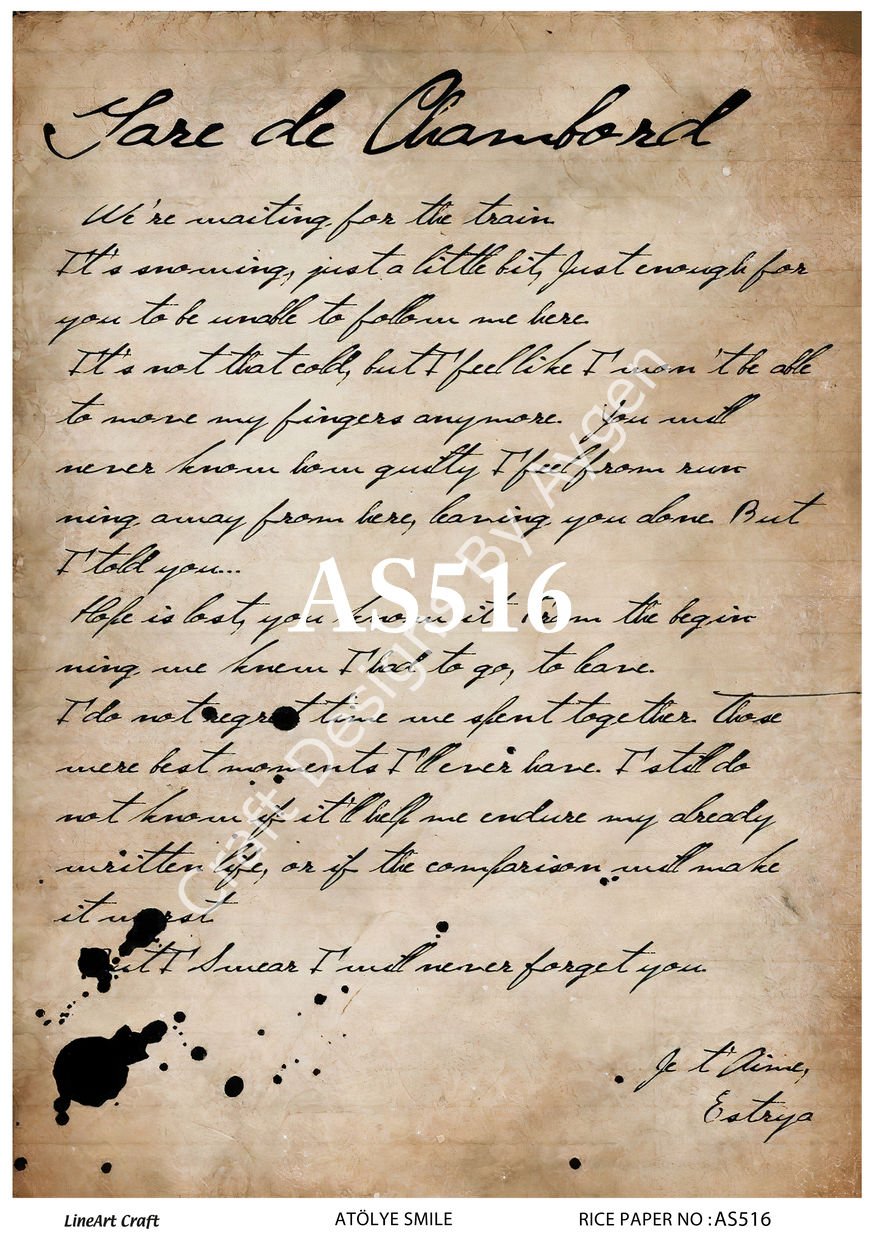 Gare de Chambord
We're waiting for the train
It's snowing, just a little bit, Just enough for
you to be unable to follow me here.
It's not that cold, but I feel like I won't be able
to move my fingers anymore. You will
never know how guilty I feel from run
ning away from here, leaving you alone. But
I told you...
AS516
Hope is lost, you know it. From the begin
ning we knew I had to go, to leave.
I do not regret time we spent together. Those
were best moments I'll ever have. I still do
not know if it'll help me endure my already
written life, or if the comparison will make
it worst
But I Swear I will never forget you.
Je t'Aime,
Estrya
Craft Designs By Aygen
LineArt Craft ATÖLYE SMILE RICE PAPER NO : AS516